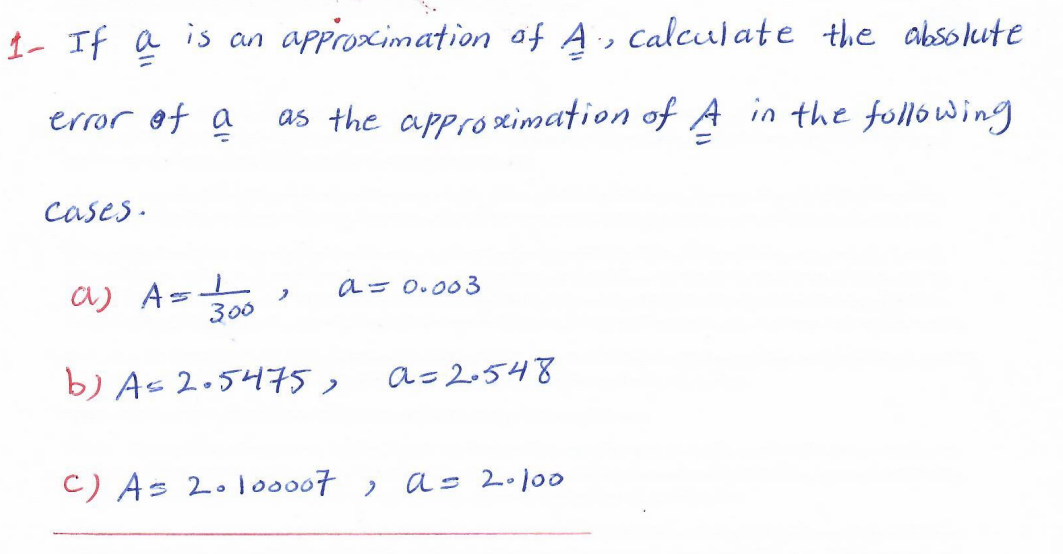 1- If a is an approximation of A, calculate the absolute
error of a as the approximation of A in the following
cases.
a) A = 1/300 , a = 0.003
b) A = 2.5475 , a = 2.548
c) A = 2.100007 , a = 2.100